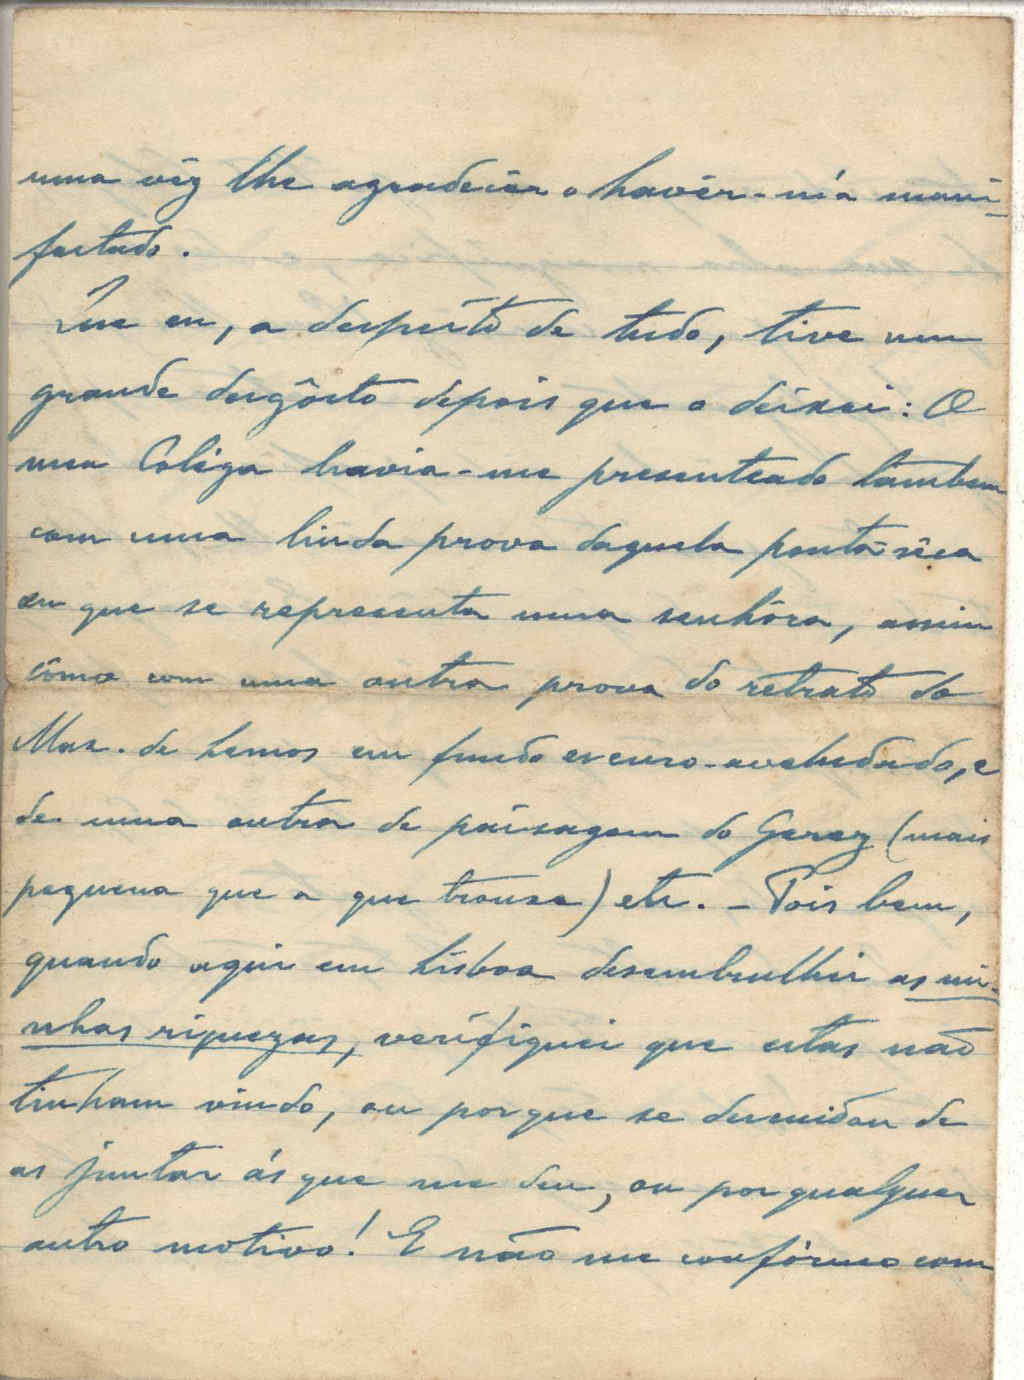 uma vêz lhe agradecêr o havêr-m'a mani-
festado.
Que eu, a despeito de tudo, tive um
grande desgôsto depois que o deixei: O
meu Coléga havia-me presenteado tambem
com uma linda prova daquela ponta-sêca
em que se representa uma senhôra, assim
cômo com uma outra prova do retrato do
Max. de Lemos em fundo escuro-aveludado, e
de uma outra de paisagem do Gerez (mais
pequena que a que trouxe) etc. - Pois bem,
quando aqui em Lisboa desembrulhei as mi-
nhas riquezas, verifiquei que estas não
tinham vindo, ou porque se descuidou de
as juntar ás que me deu, ou por qualquer
outro motivo! E não me confórmo com